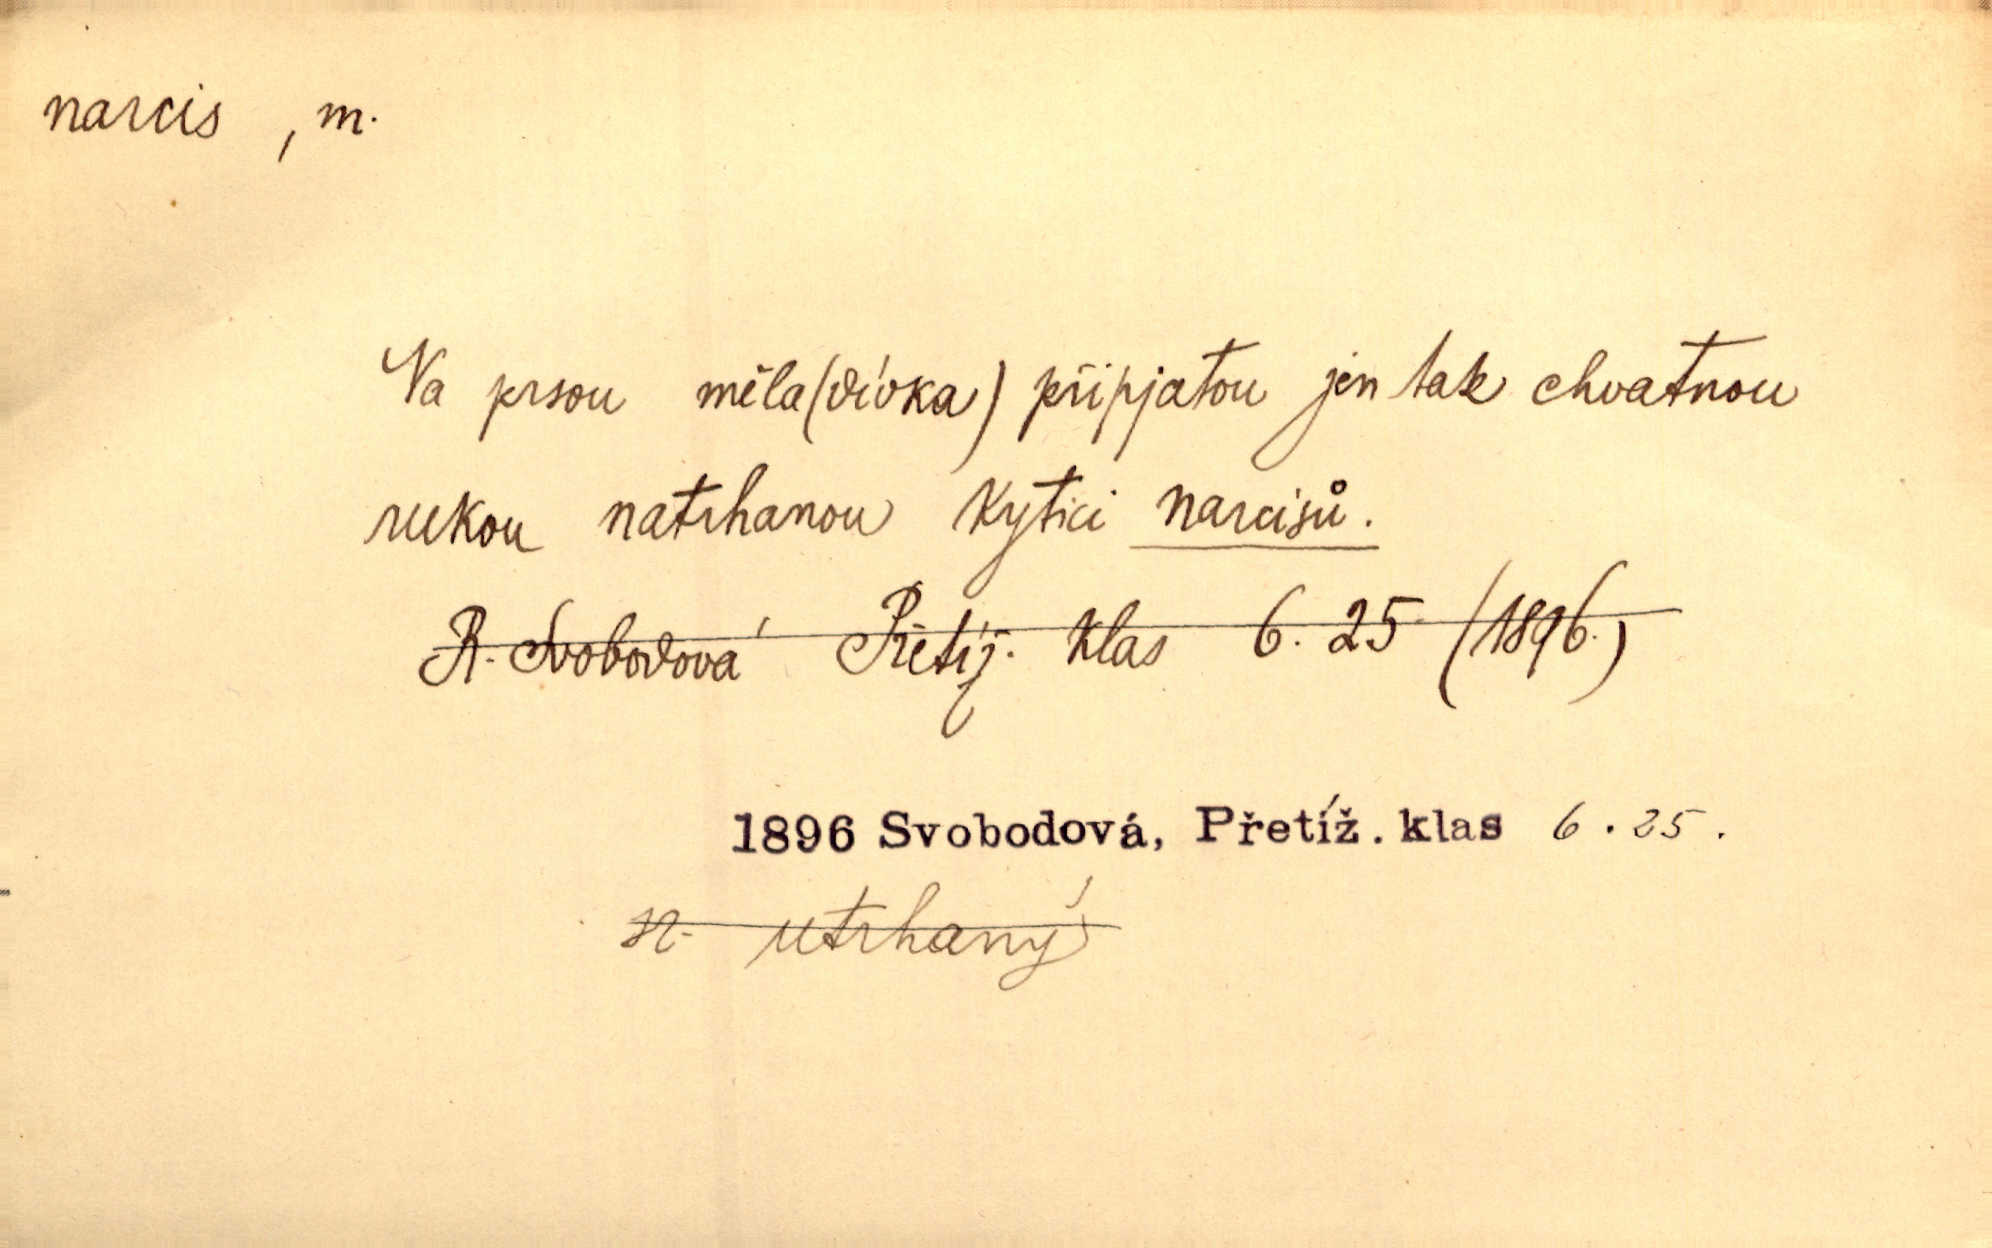 narcis , m.
Na prsou měla (dívka) připjatou jen tak chvatnou
rukou natrhanou kytici narcisů.
R. Svobodová Přetíž. klas 6. 25 (1896.)
1896 Svobodová, Přetíž. klas 6. 25.
utrhaný